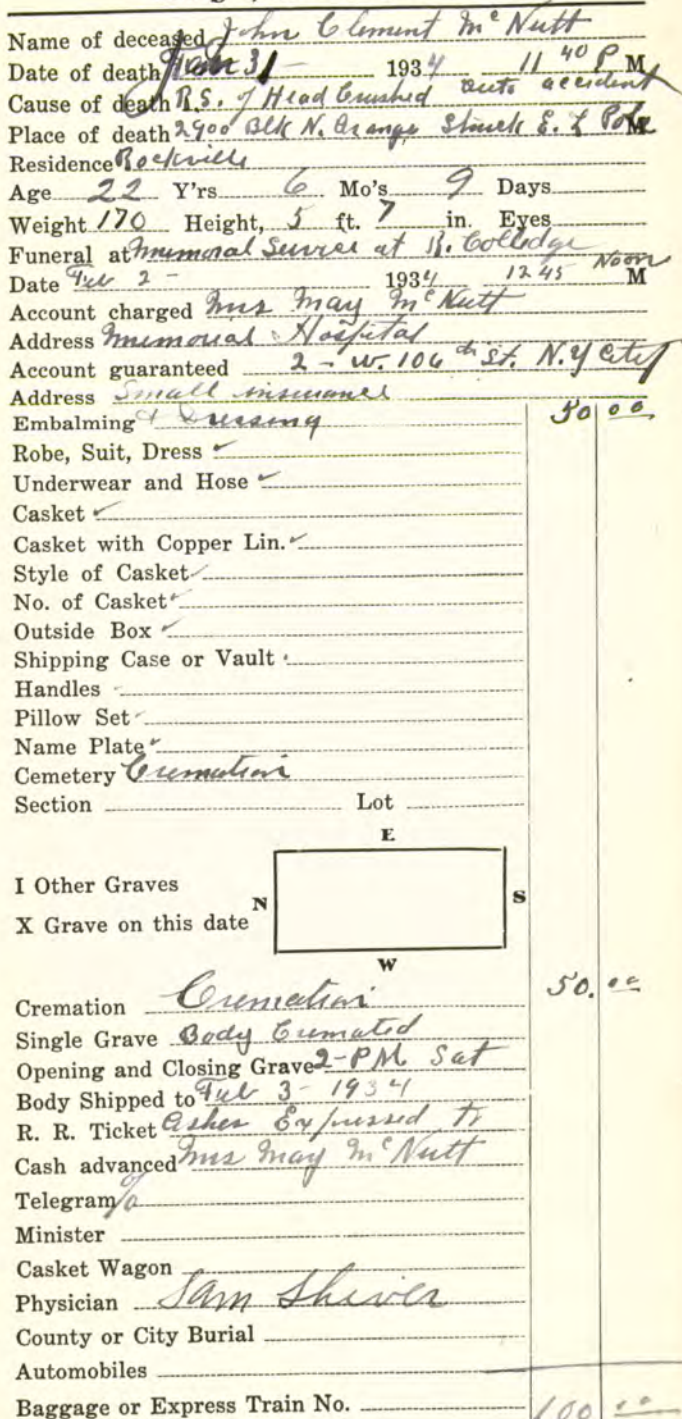 Name of deceased John Clement McNutt
Date of death Jan 31 - 1934 11 40 P M
Cause of death R.S. of Head Crushed auto accident
Place of death 2900 Blk N. Orange Struck E. L Pole M
Residence Rockville
Age 22 Y'rs 6 Mo's 9 Days
Weight 170 Height, 5 ft. 7 in. Eyes
Funeral at Memorial Service at R. Colledge
Date Feb 2 - 1934 12 45 Noon M
Account charged Mrs May McNutt
Address Memorial Hospital
Account guaranteed 2 - W. 106 th St. N.Y City
Address Small insurance
Embalming & Dressing 50 00
Robe, Suit, Dress ✓
Underwear and Hose ✓
Casket ✓
Casket with Copper Lin. ✓
Style of Casket ✓
No. of Casket ✓
Outside Box ✓
Shipping Case or Vault
Handles
Pillow Set
Name Plate
Cemetery Cremation
Section Lot
E
I Other Graves
N S
X Grave on this date
W
Cremation Cremation 50. 00
Single Grave Body Cremated
Opening and Closing Grave 2 - PM Sat
Body Shipped to Feb 3 - 1934
R. R. Ticket Ashes Expressed to
Cash advanced Mrs May McNutt
Telegram
Minister
Casket Wagon
Physician Sam Shiver
County or City Burial
Automobiles
Baggage or Express Train No. 100 00